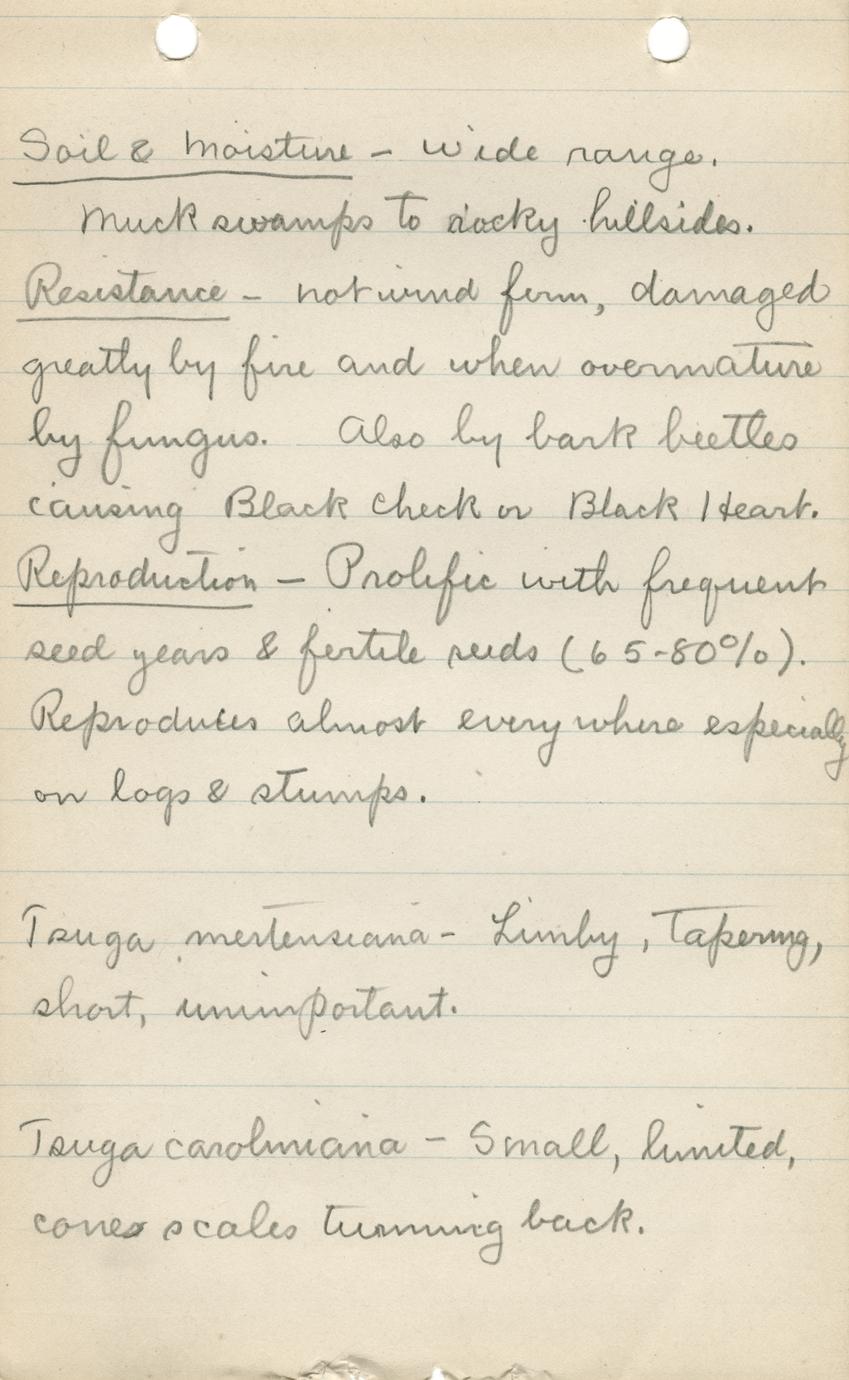 Soil & Moisture - wide range.
Muck swamps to rocky hillsides.
Resistance - not wind firm, damaged
greatly by fire and when overmature
by fungus. Also by bark beetles
causing Black Check or Black Heart.
Reproduction - Prolific with frequent
seed years & fertile seeds (65-80%).
Reproduces almost everywhere especially
on logs & stumps.
Tsuga mertensiana - Limby, Tapering,
short, unimportant.
Tsuga caroliniana - Small, limited,
cones scales turning back.